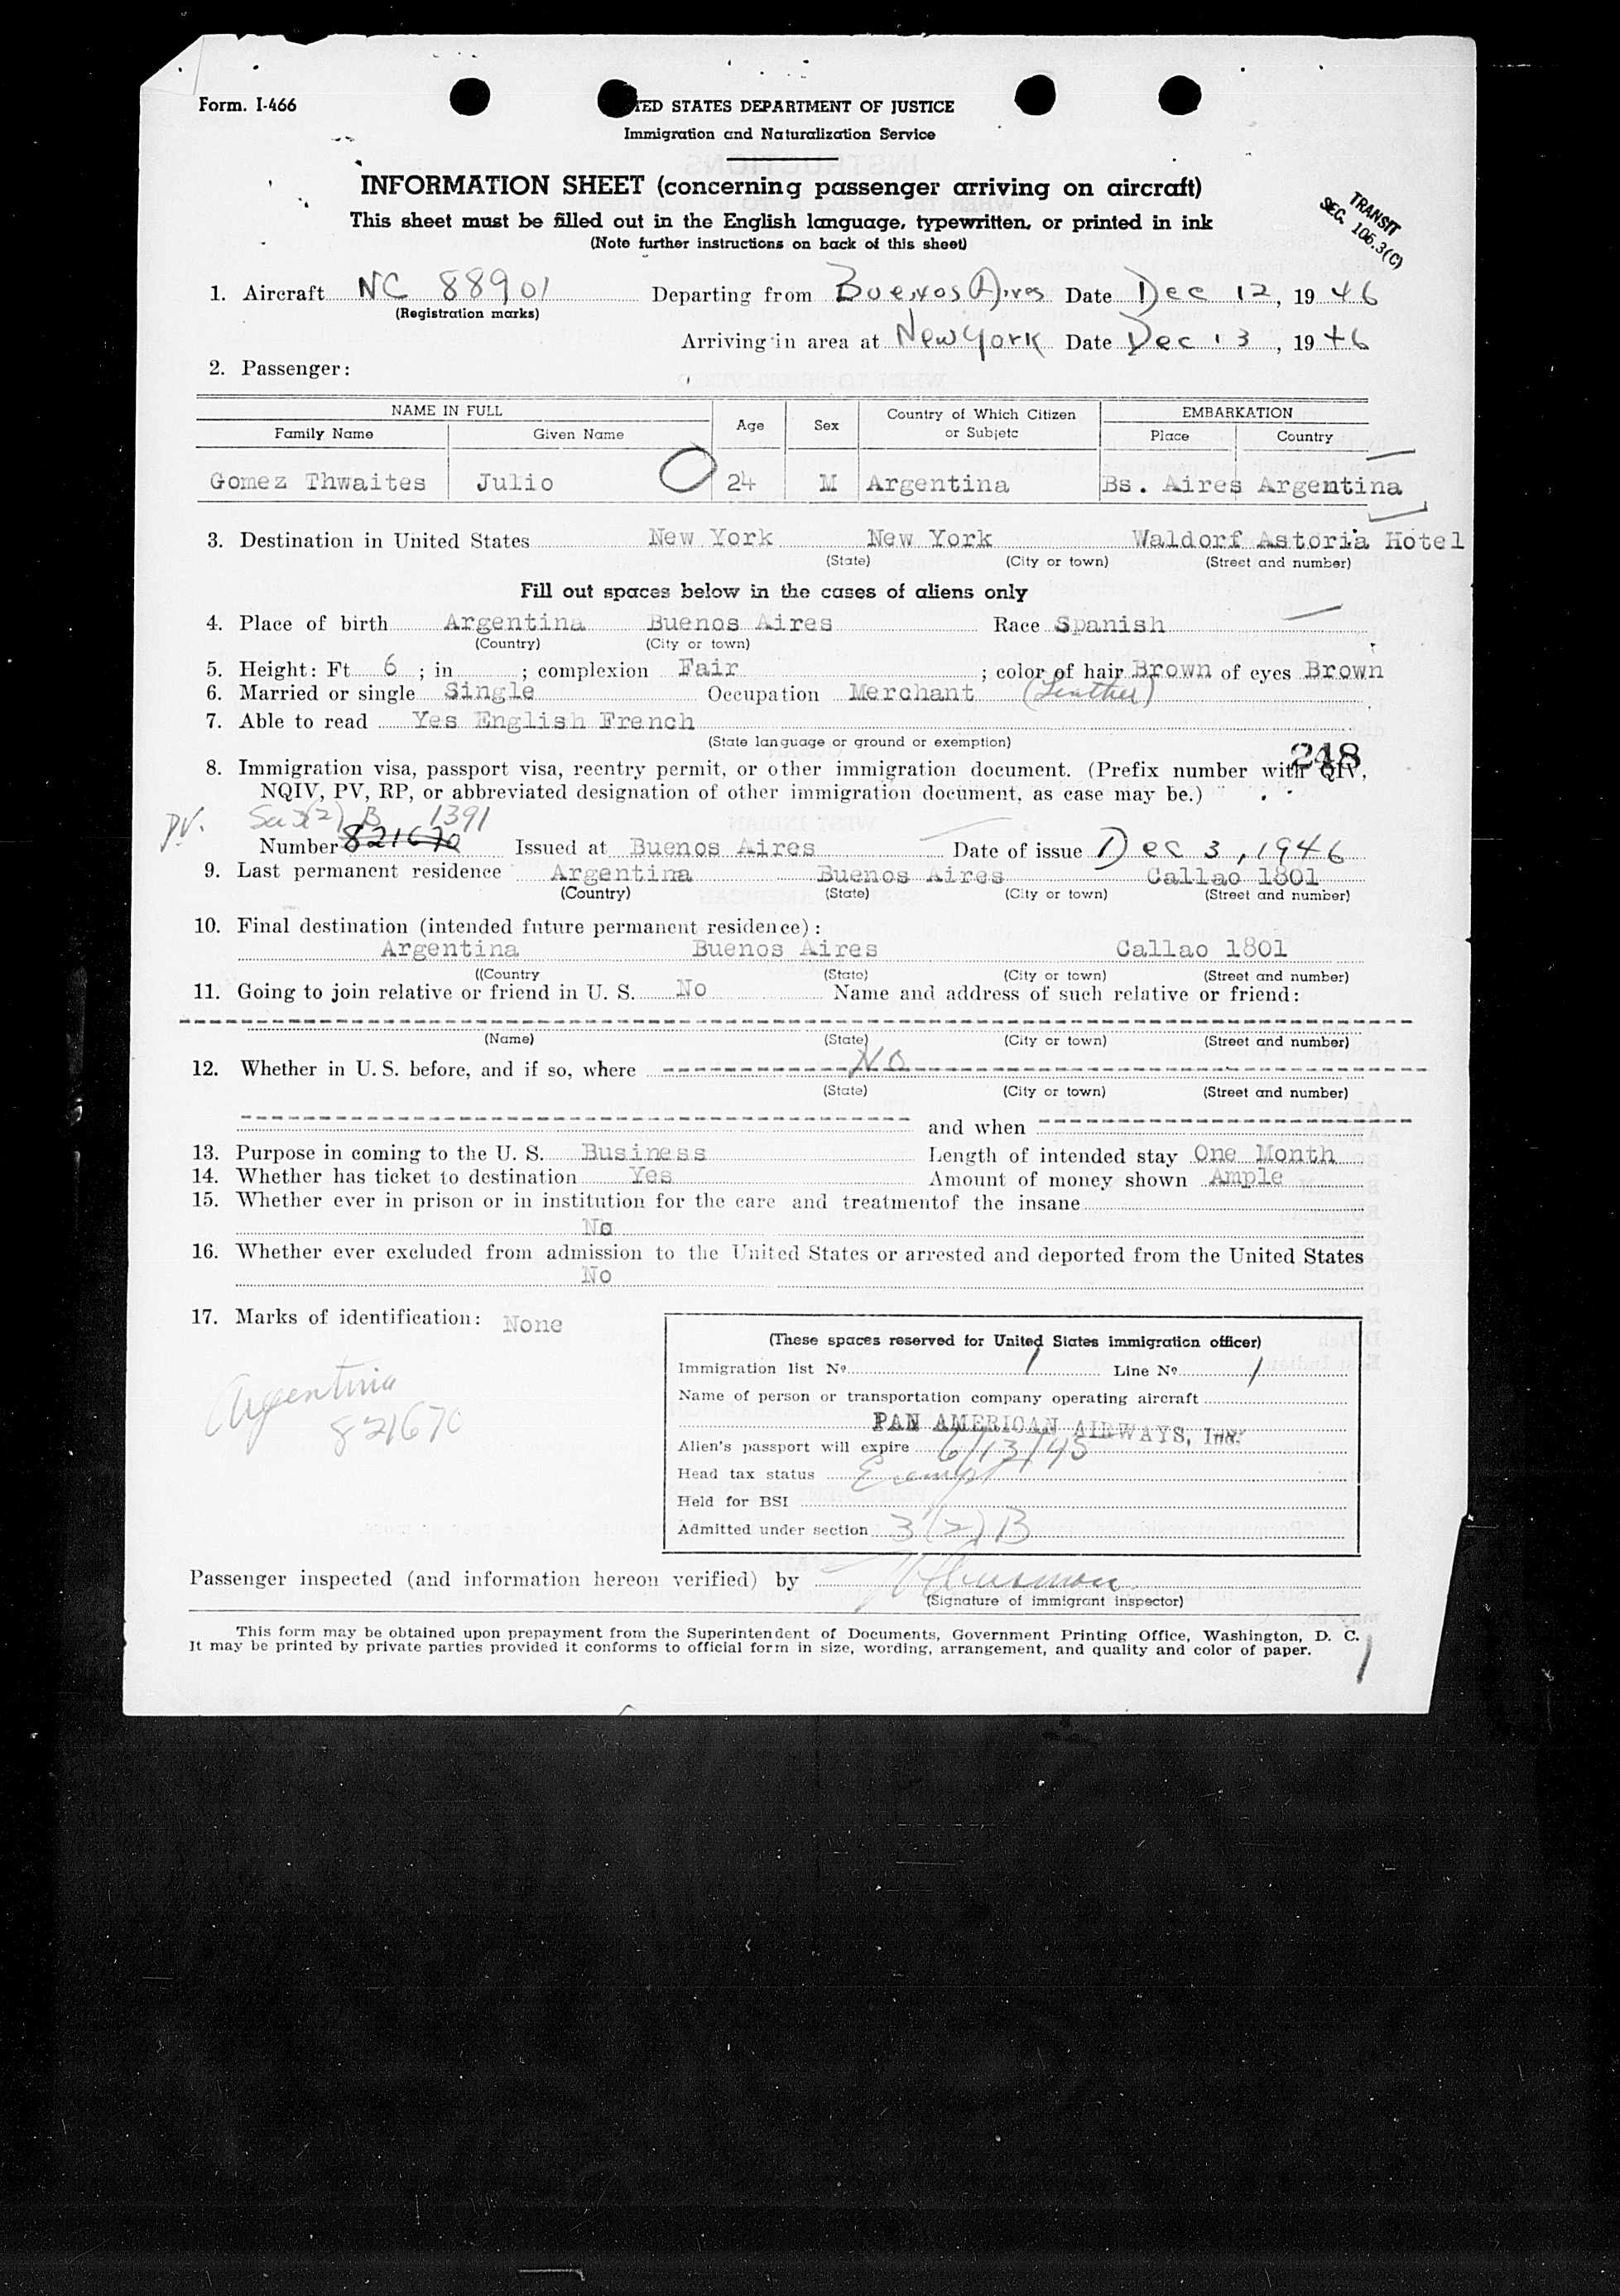 Form. I-466
TED STATES DEPARTMENT OF JUSTICE
Immigration and Naturalization Service
INFORMATION SHEET (concerning passenger arriving on aircraft)
This sheet must be filled out in the English language, typewritten, or printed in ink
(Note further instructions on back of this sheet)
TRANSIT
SEC. 106.3(C)
1. Aircraft NC 88901 Departing from Buenos Aires Date Dec 12, 19 46
(Registration marks)
Arriving in area at New York Date Dec 13, 19 46
2. Passenger:
NAME IN FULL Age Sex Country of Which Citizen or Subjetc EMBARKATION
Family Name Given Name Place Country
Gomez Thwaites Julio 24 M Argentina Bs. Aires Argentina
3. Destination in United States New York New York Waldorf Astoria Hotel
(State) (City or town) (Street and number)
Fill out spaces below in the cases of aliens only
4. Place of birth Argentina Buenos Aires Race Spanish
(Country) (City or town)
5. Height: Ft 6 ; in ; complexion Fair ; color of hair Brown of eyes Brown
6. Married or single Single Occupation Merchant (Leather)
7. Able to read Yes English French
(State language or ground or exemption)
248
8. Immigration visa, passport visa, reentry permit, or other immigration document. (Prefix number with QIV,
NQIV, PV, RP, or abbreviated designation of other immigration document, as case may be.)
PV. Sec 3(2) B 1391
Number 821670 Issued at Buenos Aires Date of issue Dec 3, 1946
9. Last permanent residence Argentina Buenos Aires Callao 1801
(Country) (State) (City or town) (Street and number)
10. Final destination (intended future permanent residence):
Argentina Buenos Aires Callao 1801
((Country (State) (City or town) (Street and number)
11. Going to join relative or friend in U. S. No Name and address of such relative or friend:
(Name) (State) (City or town) (Street and number)
12. Whether in U. S. before, and if so, where No
(State) (City or town) (Street and number)
and when
13. Purpose in coming to the U. S. Business Length of intended stay One Month
14. Whether has ticket to destination Yes Amount of money shown Ample
15. Whether ever in prison or in institution for the care and treatmentof the insane
No
16. Whether ever excluded from admission to the United States or arrested and deported from the United States
No
17. Marks of identification: None
Argentina
821670
(These spaces reserved for United States immigration officer)
Immigration list Nº 1 Line Nº 1
Name of person or transportation company operating aircraft
PAN AMERICAN AIRWAYS, Inc.
Alien's passport will expire 6/13/45
Head tax status Exempt
Held for BSI
Admitted under section 3(2) B
Passenger inspected (and information hereon verified) by
(Signature of immigrant inspector)
This form may be obtained upon prepayment from the Superintendent of Documents, Government Printing Office, Washington, D. C.
It may be printed by private parties provided it conforms to official form in size, wording, arrangement, and quality and color of paper.
1